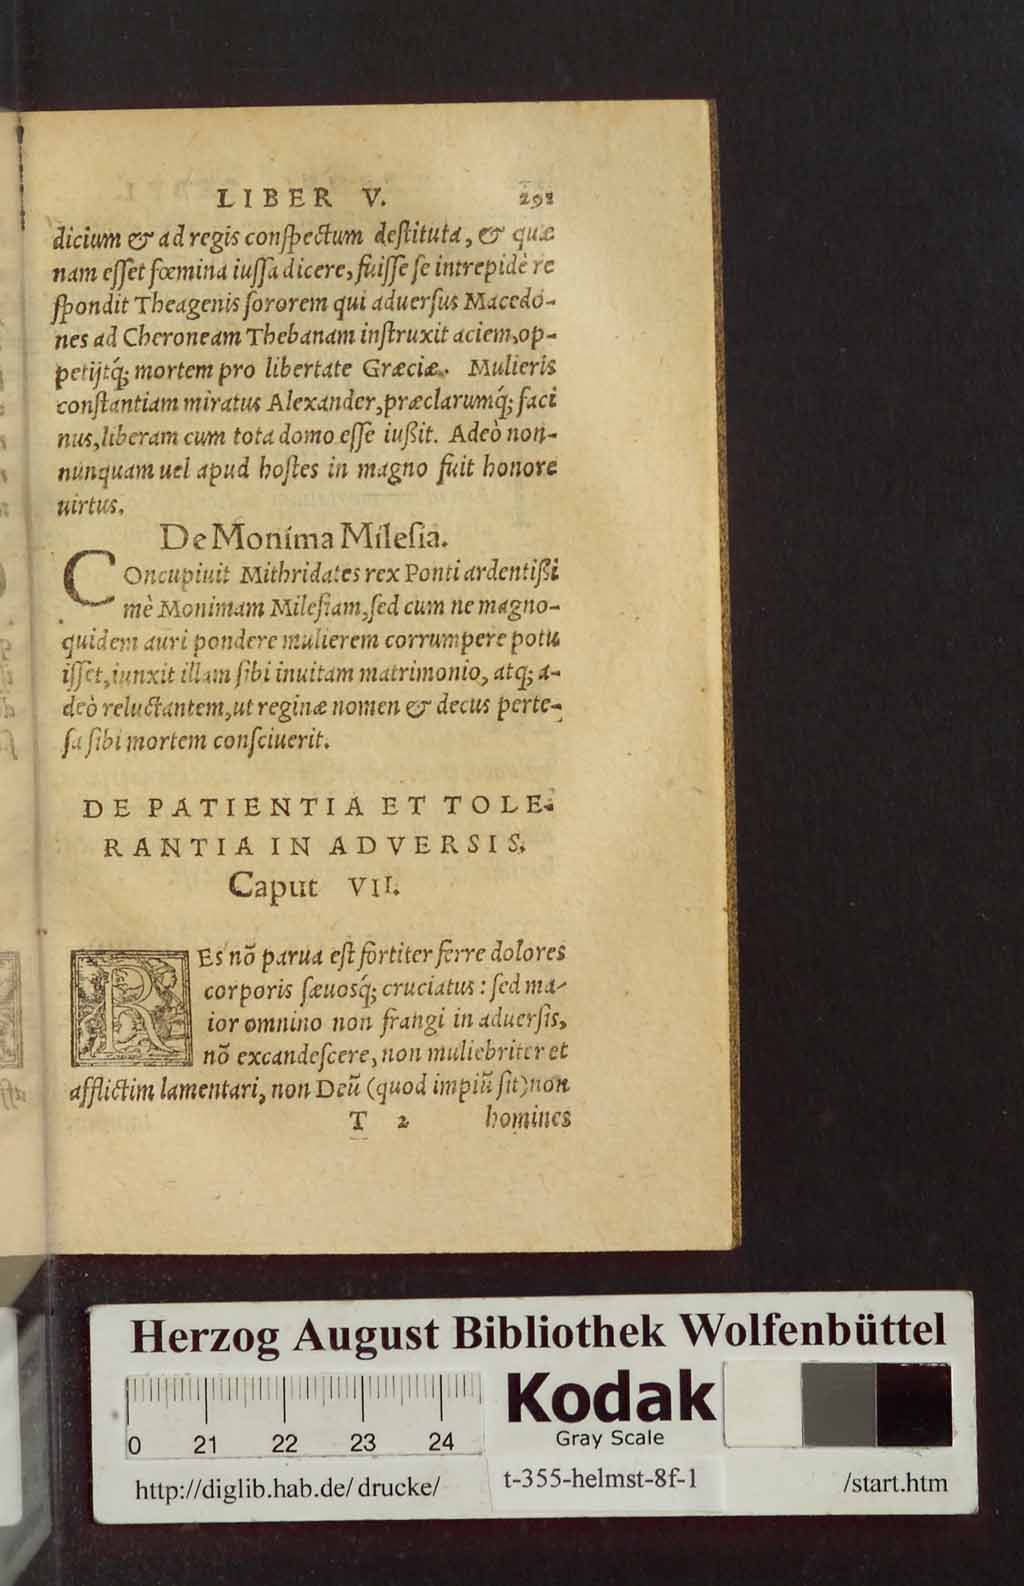 LIBER V. 291
dicium & ad regis conſpectum deſtituta, & quæ
nam eſſet fœmina iuſſa dicere, fuiſſe ſe intrepidè re
ſpondit Theagenis ſororem qui aduerſus Macedo-
nes ad Cheroneam Thebanam inſtruxit aciem, op-
petijtq́; mortem pro libertate Græciæ. Mulieris
conſtantiam miratus Alexander, præclarumq́; faci
nus, liberam cum tota domo eſſe iußit. Adeò non-
nunquam uel apud hoſtes in magno fuit honore
uirtus.
De Monima Mileſia.
COncupiuit Mithridates rex Ponti ardentißi
mè Monimam Mileſiam, ſed cum ne magno-
quidem auri pondere mulierem corrumpere potu
iſſet, iunxit illam ſibi inuitam matrimonio, atq; a-
deò reluctantem, ut reginæ nomen & decus perte-
ſa ſibi mortem conſciuerit.
DE PATIENTIA ET TOLE-
RANTIA IN ADVERSIS.
Caput VII.
REs nō parua eſt fortiter ferre dolores
corporis ſæuosq́; cruciatus: ſed ma-
ior omnino non frangi in aduerſis,
nō excandeſcere, non muliebriter et
afflictim lamentari, non Deū (quod impiū ſit) non
T 2 homines
Herzog August Bibliothek Wolfenbüttel
Kodak
Gray Scale
0 21 22 23 24
http://diglib.hab.de/drucke/ t-355-helmst-8f-1 /start.htm